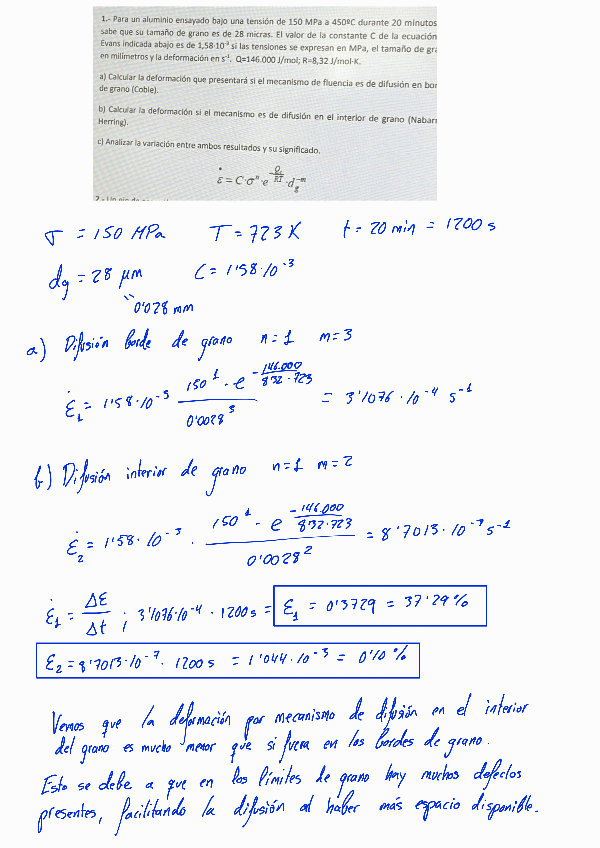 1.- Para un aluminio ensayado bajo una tensión de 150 MPa a 450ºC durante 20 minutos
sabe que su tamaño de grano es de 28 micras. El valor de la constante C de la ecuación
Evans indicada abajo es de 1,58·10⁻³ si las tensiones se expresan en MPa, el tamaño de gra
en milímetros y la deformación en s⁻¹. Q=146.000 J/mol; R=8,32 J/mol·K.
a) Calcular la deformación que presentará si el mecanismo de fluencia es de difusión en bor
de grano (Coble).
b) Calcular la deformación si el mecanismo es de difusión en el interior de grano (Nabar
Herring).
c) Analizar la variación entre ambos resultados y su significado.
ε̇ = C·σⁿ·e^(-Q/RT)·d_g^(-m)
σ = 150 MPa T = 723 K t = 20 min = 1200 s
dg = 28 µm C = 1'58·10⁻³
0'028 mm
a) Difusión borde de grano n=1 m=3
ε̇₁ = 1'58·10⁻³ 150¹ · e^(-146.000/8'32·723) / 0'0028³ = 3'1076·10⁻⁴ s⁻¹
b) Difusión interior de grano n=1 m=2
ε̇₂ = 1'58·10⁻³ · 150¹ · e^(-146.000/8'32·723) / 0'0028² = 8'7013·10⁻⁷ s⁻¹
ε̇₁ = Δε/Δt ; 3'1076·10⁻⁴ · 1200 s = ε₁ = 0'3729 = 37'29%
ε₂ = 8'7013·10⁻⁷ · 1200 s = 1'044·10⁻³ = 0'10 %
Vemos que la deformación por mecanismo de difusión en el interior
del grano es mucho menor que si fuera en los bordes de grano.
Esto se debe a que en los límites de grano hay muchos defectos
presentes, facilitando la difusión al haber más espacio disponible.